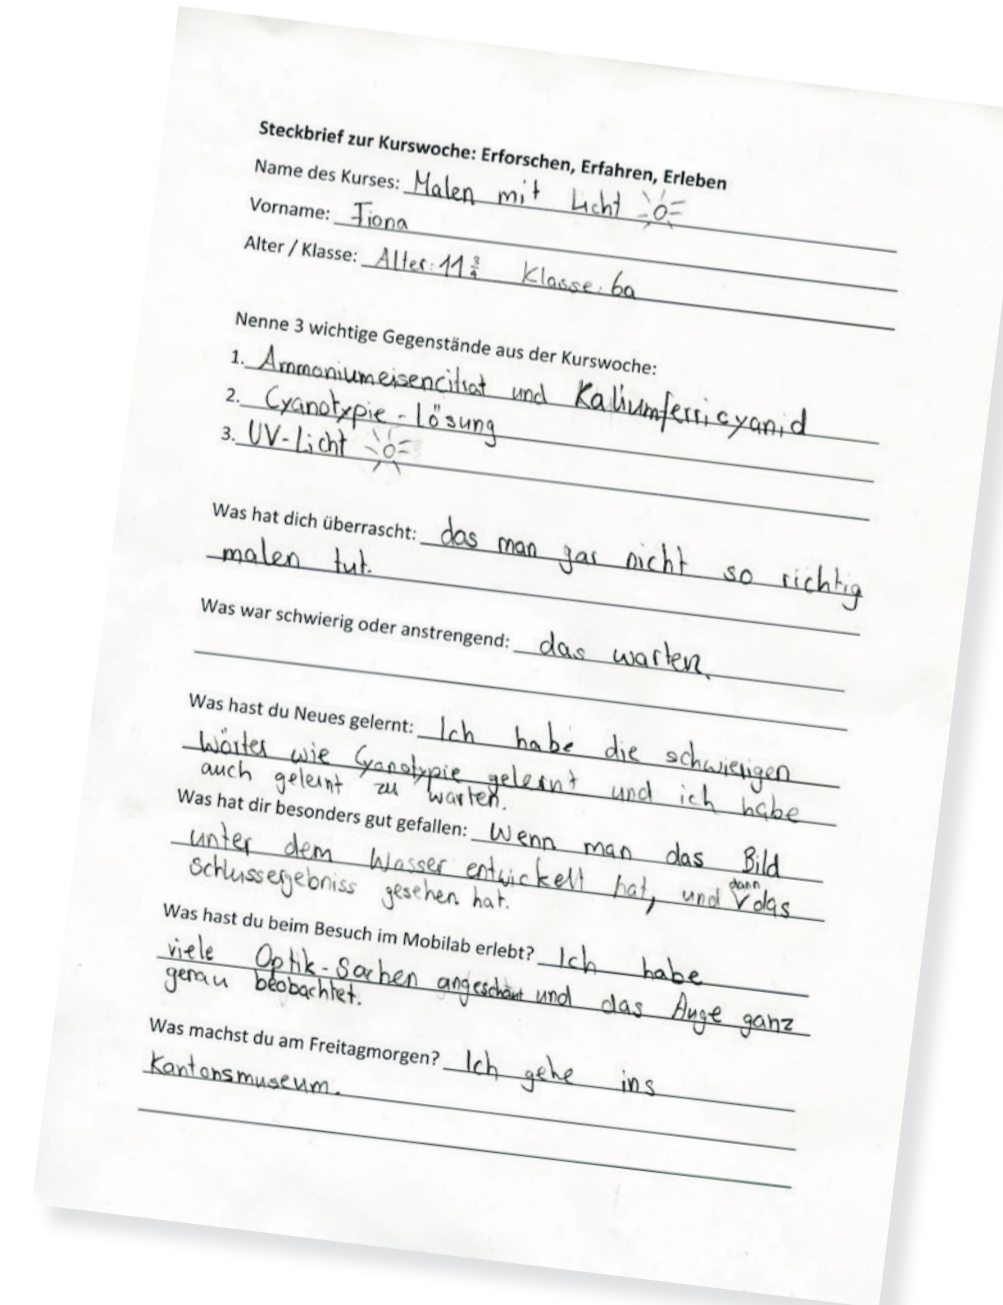 Steckbrief zur Kurswoche: Erforschen, Erfahren, Erleben
Name des Kurses: Malen mit Licht
Vorname: Fiona
Alter / Klasse: Alter: 11 3/4 Klasse: 6a
Nenne 3 wichtige Gegenstände aus der Kurswoche:
1. Ammoniumeisencitrat und Kaliumferricyanid
2. Cyanotypie-Lösung
3. UV-Licht
Was hat dich überrascht: das man gar nicht so richtig
malen tut.
Was war schwierig oder anstrengend: das warten.
Was hast du Neues gelernt: Ich habe die schwierigen
Wörter wie Cyanotypie gelernt und ich habe
auch gelernt zu warten.
Was hat dir besonders gut gefallen: Wenn man das Bild
unter dem Wasser entwickelt hat, und dann das
Schlussergebniss gesehen hat.
Was hast du beim Besuch im Mobilab erlebt? Ich habe
viele Optik-Sachen angeschaut und das Auge ganz
genau beobachtet.
Was machst du am Freitagmorgen? Ich gehe ins
Kantonsmuseum.